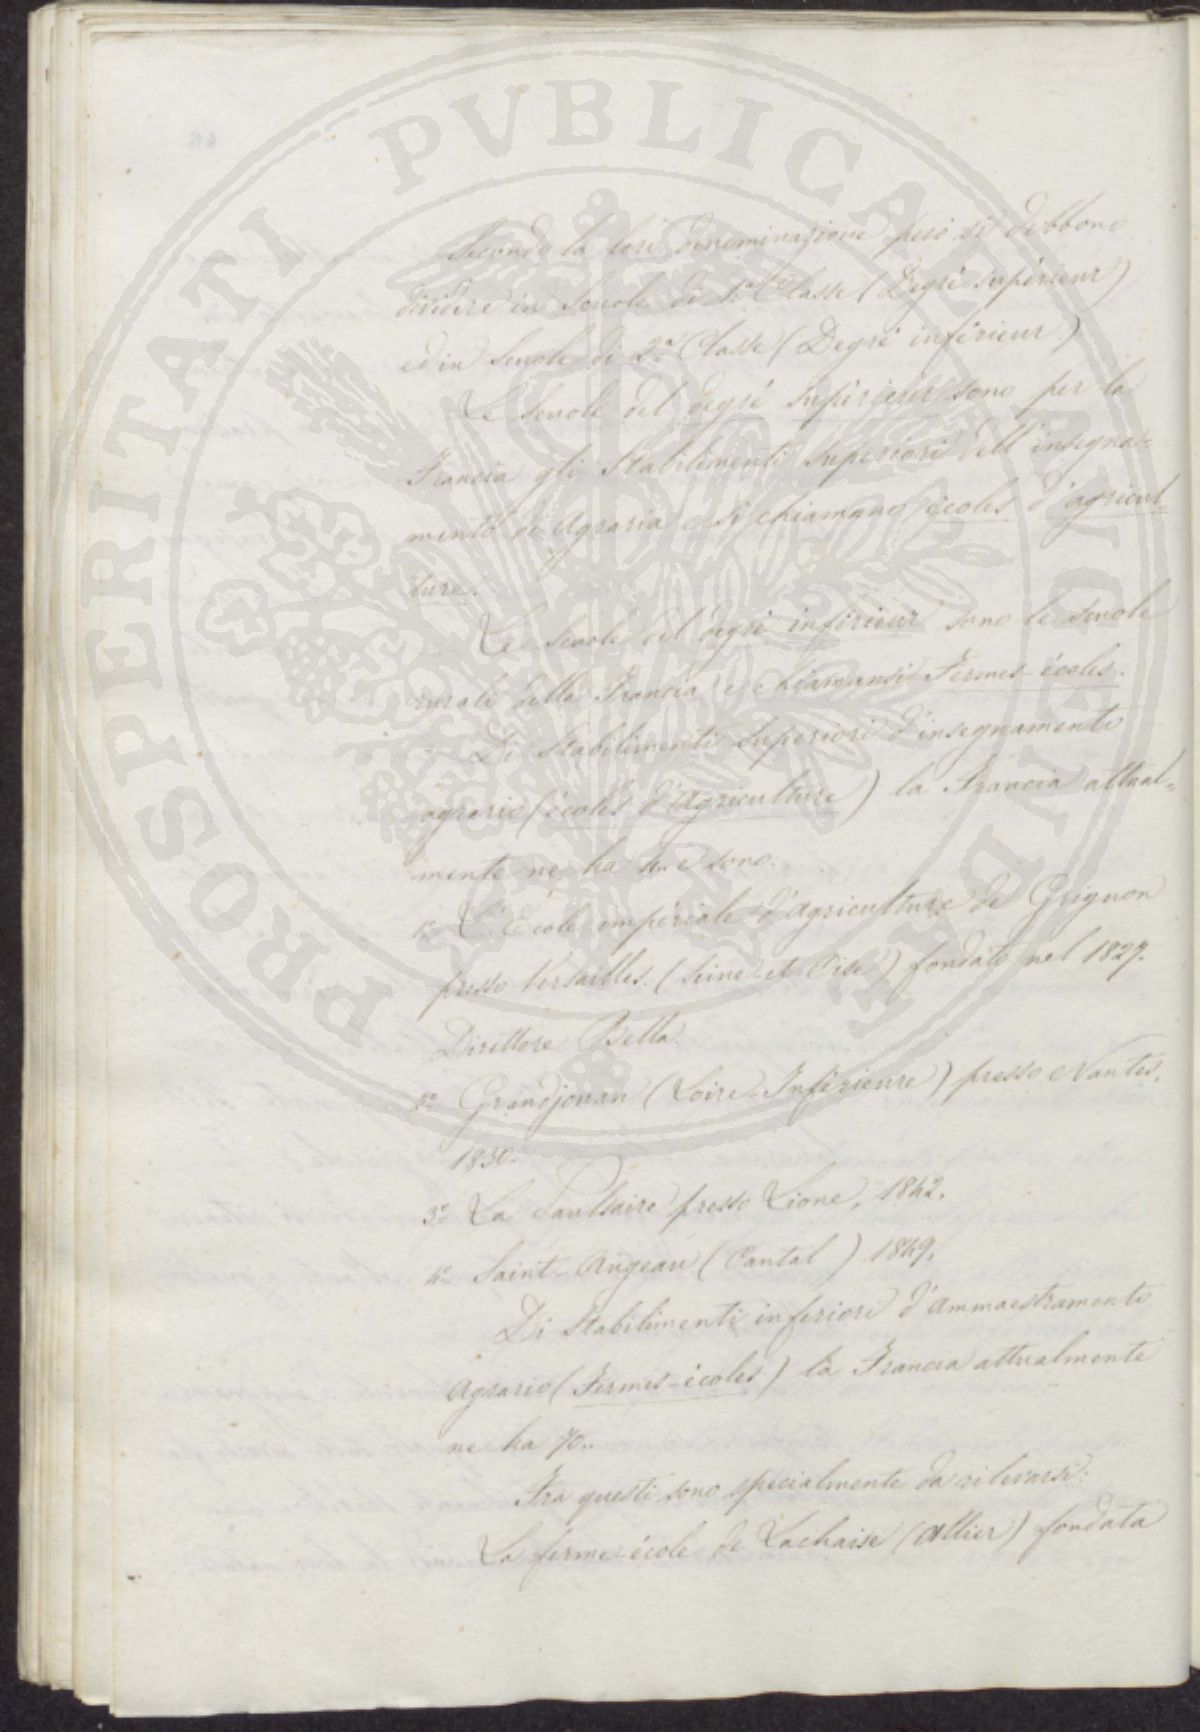 PROSPERITATI PVBLICAE AVGENDAE
Secondo la loro denominazione però si debbono
dividere in Scuole di 1.ª Classe (Degré supérieur)
ed in Scuole di 2.ª Classe (Degré inférieur)
Le Scuole del degré supérieur sono per la
Francia gli Stabilimenti superiori dell'insegna=
mento di Agraria e si chiamano écoles d'agricul=
ture.
Le Scuole del degré inférieur sono le Scuole
rurali della Francia e chiamansi Fermes-écoles.
Di Stabilimenti superiori d'insegnamento
agrario (écoles d'Agriculture) la Francia attual=
mente ne ha 4. e sono.
1.º L'École impériale d'Agriculture de Grignon
presso Versailles. (Seine-et-Oise) fondata nel 1827.
Direttore Bella.
2.º Grandjouan (Loire-Inférieure) presso Nantes,
1830.
3.º La Saulsaire presso Lione, 1842.
4.º Saint-Angeau (Cantal) 1849.
Di Stabilimenti inferiori d'ammaestramento
Agrario (Fermes-écoles) la Francia attualmente
ne ha 70..
Fra questi sono specialmente da rilevarsi:
La ferme-école de Lachaise (Allier) fondata